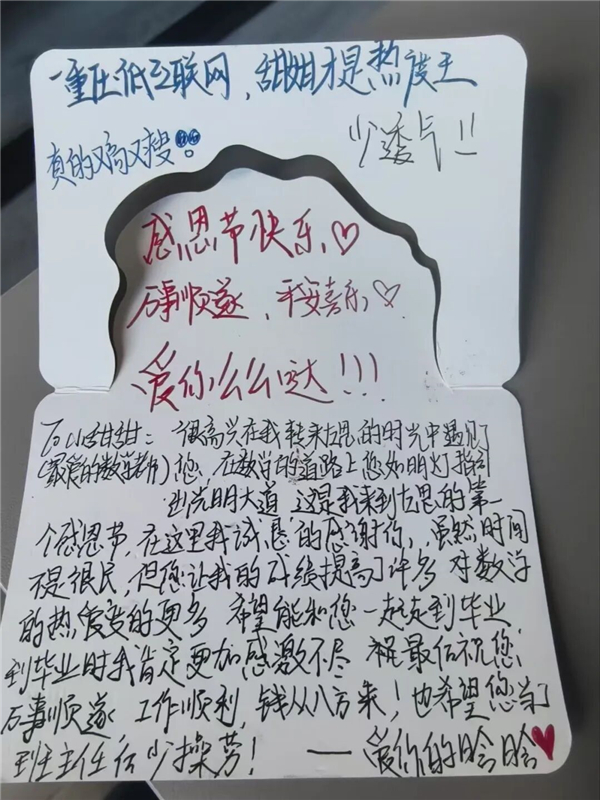 一重庄低互联网，甜甜才是热度王
真的又高又瘦
少透气!!
感恩节快乐♡
万事顺遂、平安喜乐♡
爱你么么哒!!!
To 小甜甜： 很高兴在我转来怯思的时光中遇见了
(最爱的数学老师)您，在数学的道路上您如明灯指引
出光明大道 这是我来到怯思的第一
个感恩节，在这里我诚恳的感谢你，虽然时间
不是很长，但您让我的成绩提高了许多 对数学
的热爱变的更多 希望能和您一起走到毕业
到毕业时我肯定更加感激不尽 祝最后祝您：
万事顺遂，工作顺利，钱从八方来！也希望您当了
班主任后少操劳！ ——爱你的晗晗♥